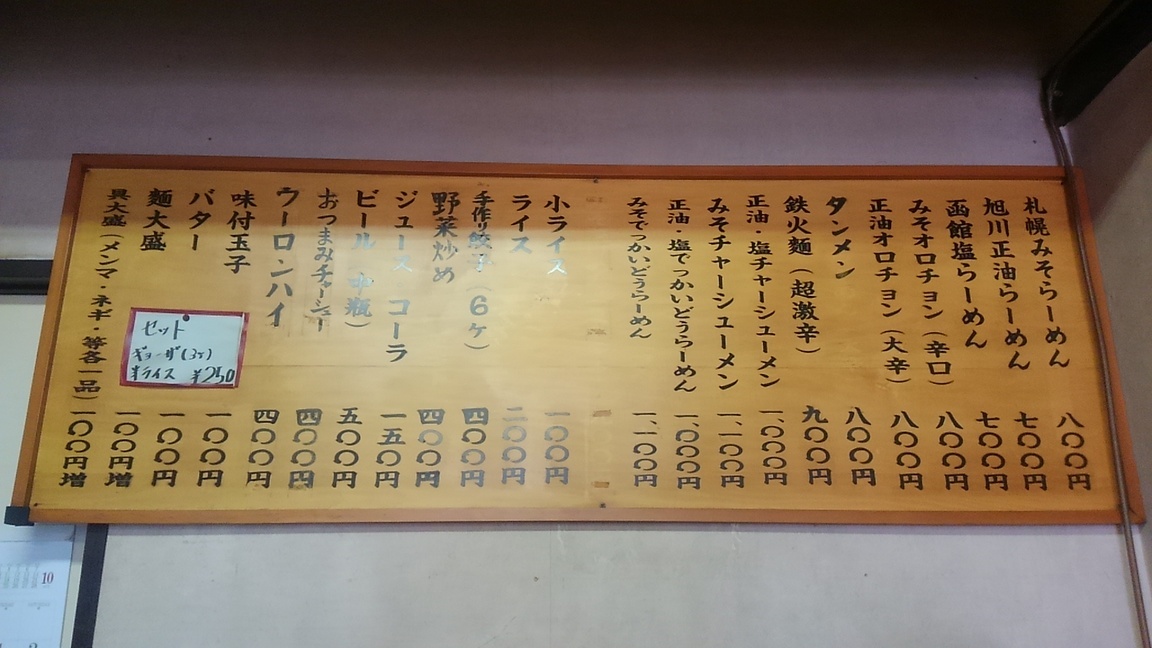 札幌みそらーめん 八〇〇円
旭川正油らーめん 七〇〇円
函館塩らーめん 七〇〇円
みそオロチョン（辛口） 八〇〇円
正油オロチョン（大辛） 八〇〇円
タンメン 八〇〇円
鉄火麺（超激辛） 九〇〇円
正油・塩チャーシューメン 一、〇〇〇円
みそチャーシューメン 一、一〇〇円
正油・塩でっかいどうらーめん 一、〇〇〇円
みそでっかいどうらーめん 一、一〇〇円
小ライス 一〇〇円
ライス 二〇〇円
手作り餃子（６ケ） 四〇〇円
野菜炒め 四〇〇円
ジュース コーラ 一五〇円
ビール（中瓶） 五〇〇円
おつまみチャーシュー 四〇〇円
ウーロンハイ 四〇〇円
味付玉子 一〇〇円
バター 一〇〇円
麺大盛 一〇〇円増
具大盛（メンマ・ネギ・等各一品） 一〇〇円増
セット
ギョーザ(3ケ)
半ライス ¥250
10